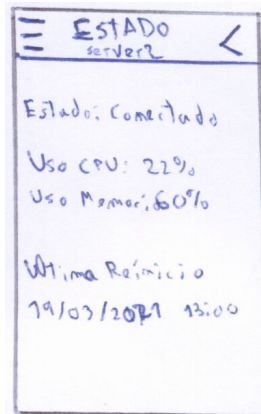 EStADO
server2
Estado: Conectado
Uso CPU: 22%
Uso Memori: 60%
Ultima Reinicio
19/03/2021 13:00